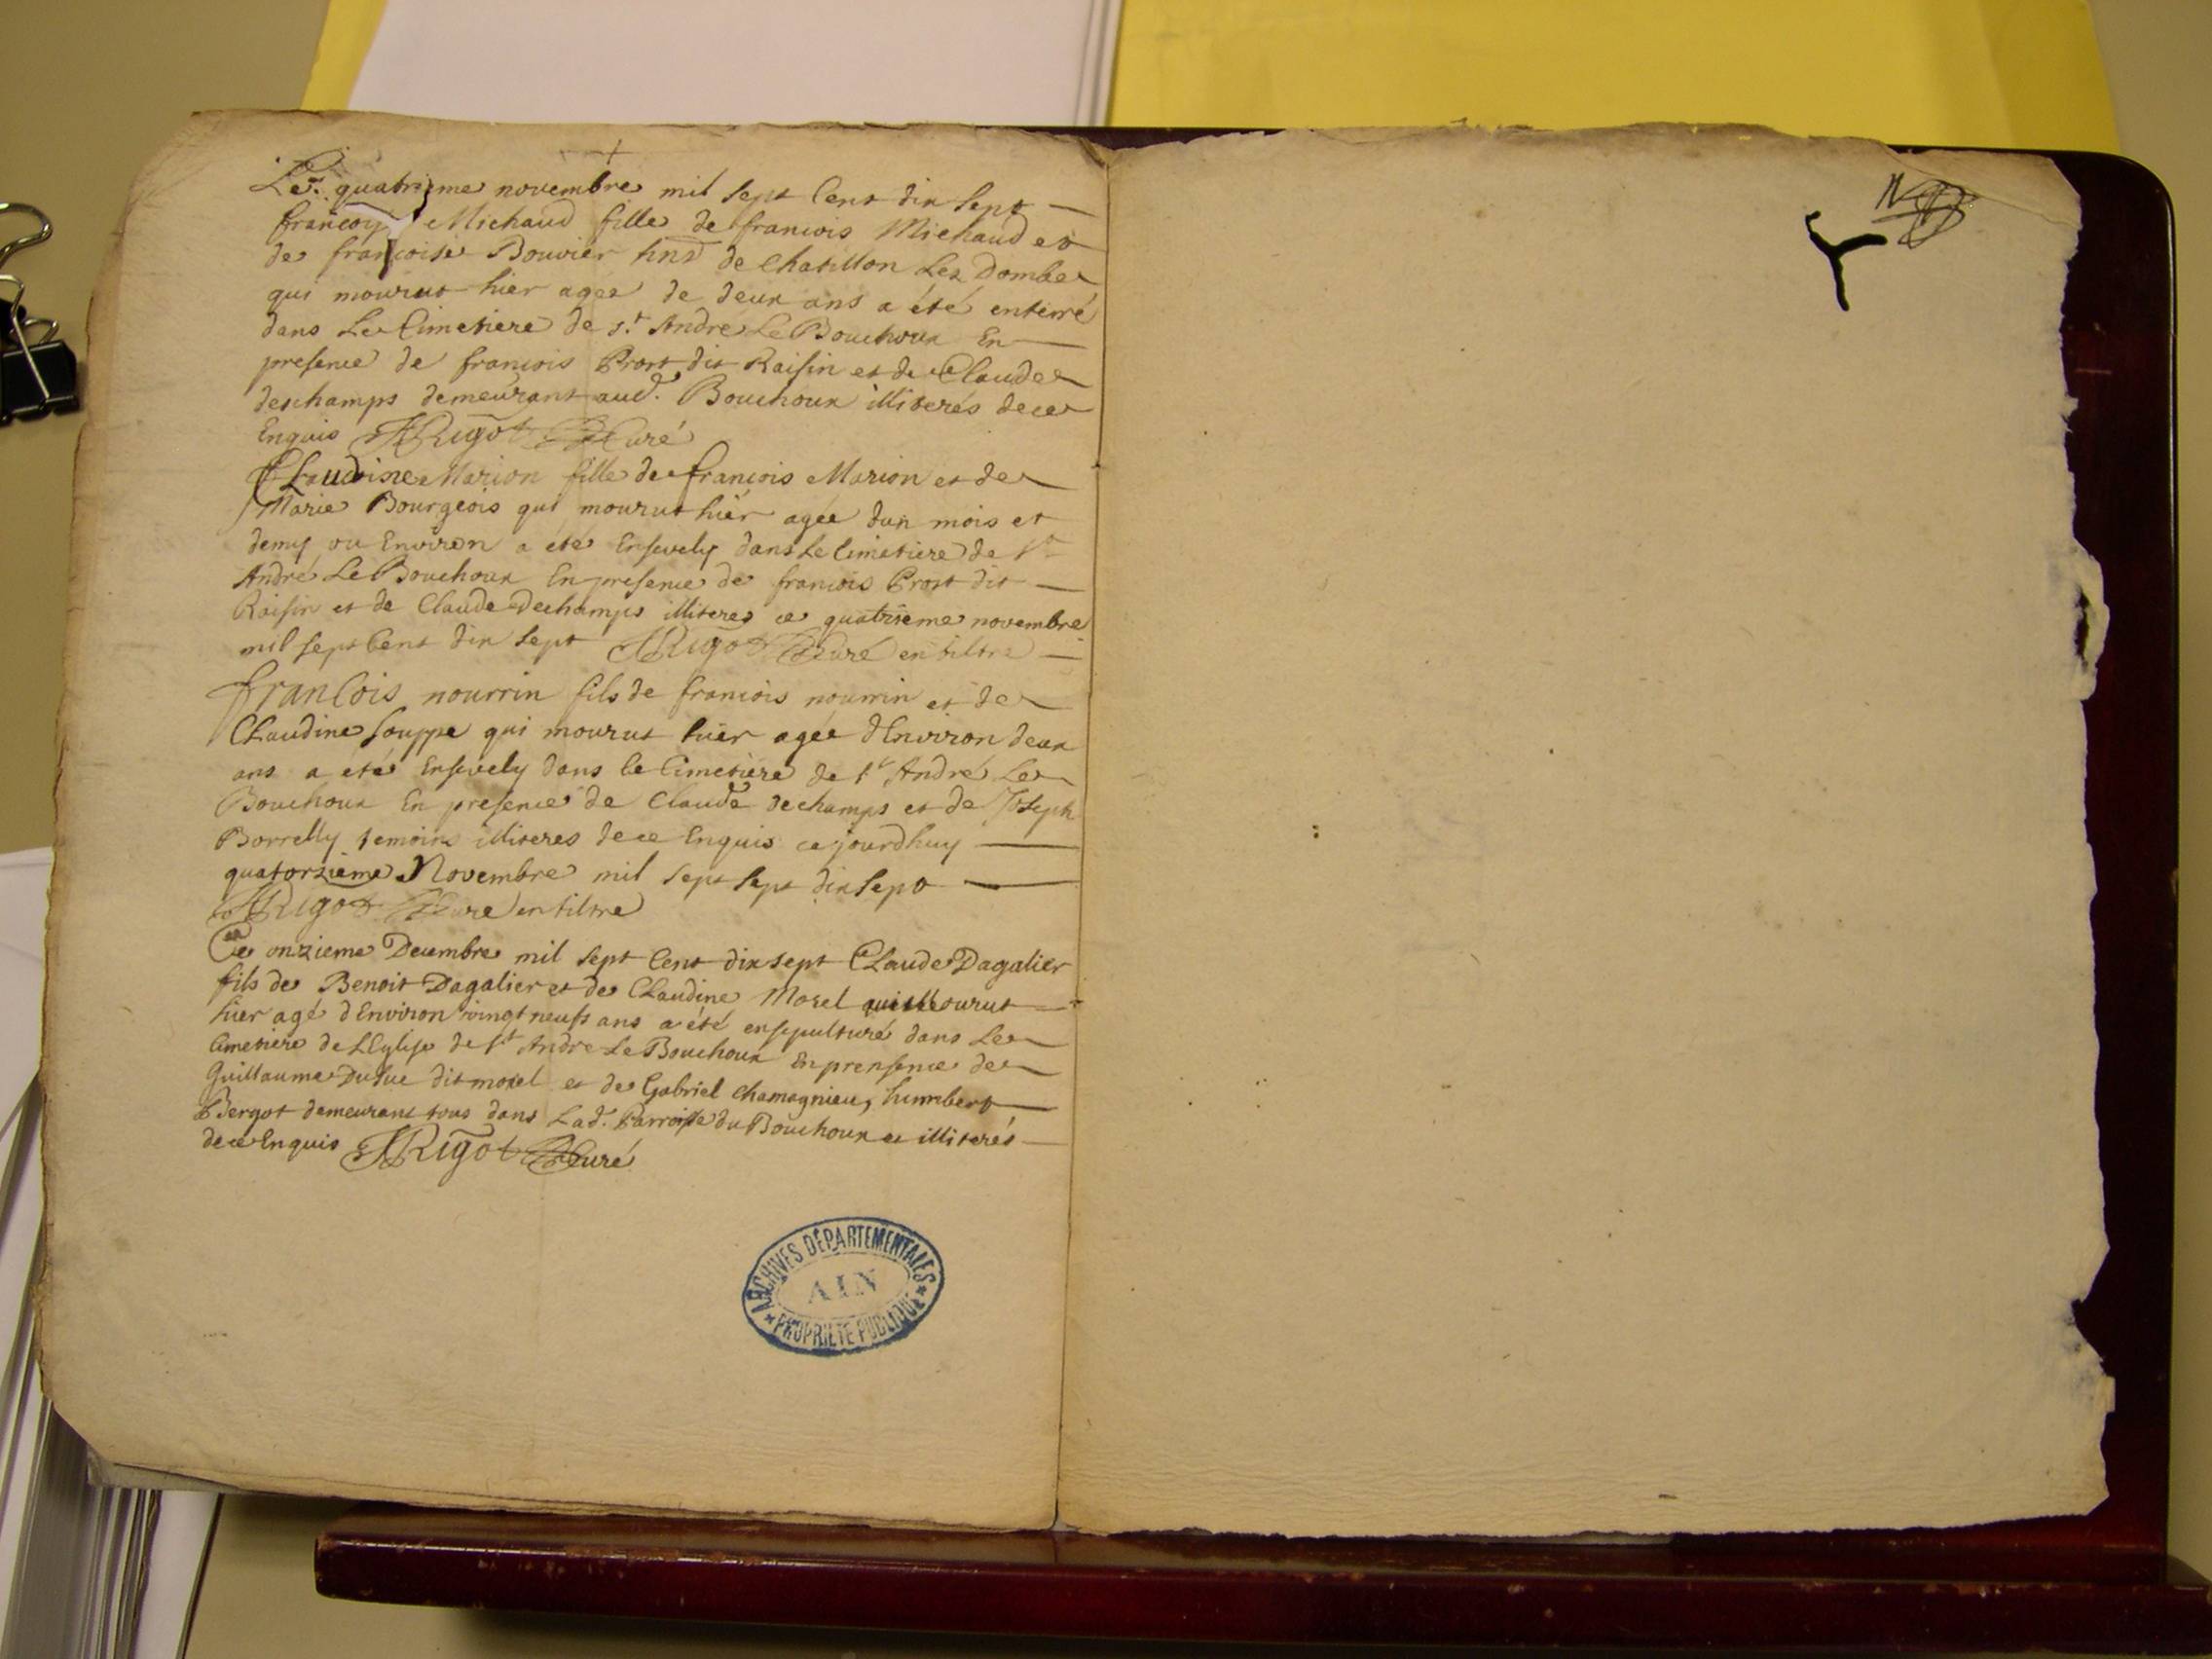 Le quatrieme novembre mil sept Cent dix sept
francoise Michaud fille de francois Michaud et
de francoise Bouvier hnd de Chatillon Lez Dombes
qui mourut hier agee de deux ans a été enterré
dans Le Cimetiere de st Andre Le Bouchoux En
presence de francois Prost dit Raisin et de Claude
deschamps demeurant aud. Bouchoux illiterés de ce
Enquis Rigot Curé
Claudine Marion fille de francois Marion et de
Marie Bourgeois qui mourut hier agée dun mois et
demy ou Environ a eté Ensevely dans Le Cimetiere de st
André Le Bouchoux En presence de francois Prost dit
Raisin et de Claude Dechamps illiteres ce quatrieme novembre
mil sept Cent dix sept Rigot Curé en tiltre
francois nourrin fils de francois nourrin et de
Claudine souppe qui mourut hier agée dEnviron deux
ans a eté Ensevely dans le Cimetiere de st André Le
Bouchoux En presence de Claude dechamps et de Joseph
Borrelly temoins illiteres de ce Enquis cejourdhuy
quatorzieme Novembre mil sept sept dix sept
Rigot Cure en tiltre
Ce onzieme Decembre mil sept Cent dix sept Claude Dagalier
fils de Benoit Dagalier et de Claudine Morel qui Mourut
hier agé dEnviron vingt neufs ans a été ensepulturé dans Le
Cimetiere de LEglise de st Andre Le Bouchoux En prensence de
Guillaume Dusuc dit morel et de Gabriel Chamagnieu, humbert
Bergot demeurant tous dans Lad. Parroisse du Bouchoux et illiterés
de ce Enquis Rigot Curé
ARCHIVES DÉPARTEMENTALES
AIN
PROPRIÉTÉ PUBLIQUE